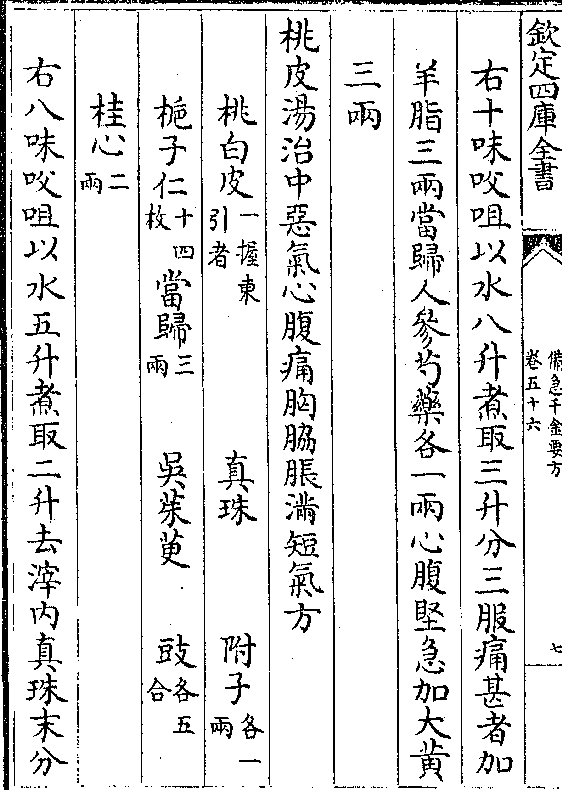 欽定四庫全書
備急千金要方
卷五十六
七
右十味㕮咀以水八升煮取三升分三服痛甚者加
羊脂三兩當歸人參芍藥各一兩心腹堅急加大黄
三兩
桃皮湯治中惡氣心腹痛胸脇脹滿短氣方
桃白皮一握東引者 真珠 附子各一兩
梔子仁十四枚 當歸三兩 吳茱萸 豉各五合
桂心二兩
右八味㕮咀以水五升煮取二升去滓内真珠末分